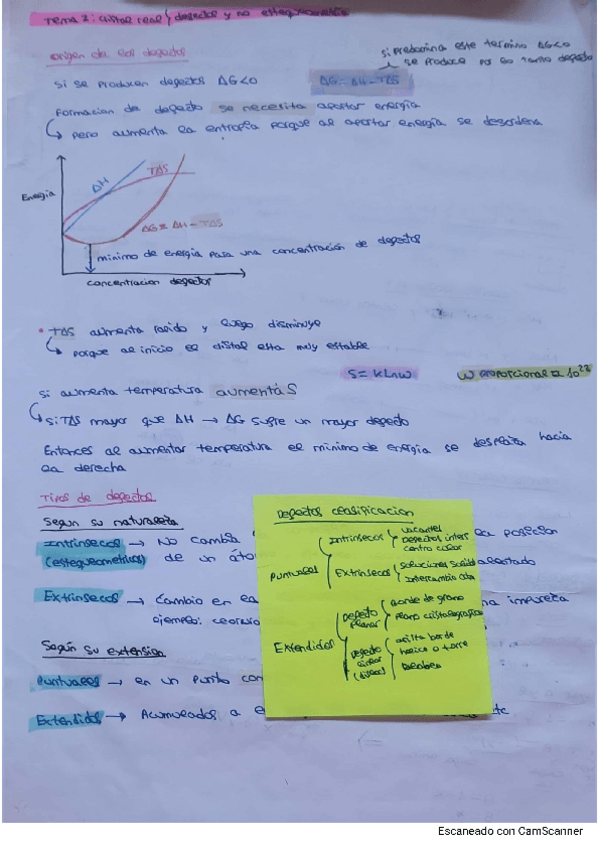 Tema 2: cristal real / defectos y no estequiometria
origen de los defectos
si predomina este termino ΔG<0
se produce por lo tanto defecto
si se producen defectos ΔG<0
ΔG = ΔH - TΔS
Formacion de defecto se necesita aportar energia
↳ pero aumenta la entropia porque al aportar energia se desordena
Energia
ΔH
TΔS
ΔG = ΔH - TΔS
minimo de energia para una concentración de defectos
concentracion defectos
• TΔS aumenta rapido y luego disminuye
↳ porque al inicio el cristal esta muy estable
S = K Ln w
w proporcional a 10²³
si aumenta temperatura aumenta S
↳ si TΔS mayor que ΔH → ΔG sufre un mayor defecto
Entonces al aumentar temperatura el minimo de energia se desplaza hacia
la derecha
Tipos de defectos
Segun su naturaleza
Intrinsecos → No cambia
la posicion
(estequeometricos) de un áto
Extrinsecos → Cambio en la
una impureza
ejemplo:
Según su extension
Puntuales → en un punto con
Extendidos → Acumulados a
etc
Defectos clasificacion
Puntuales
Intrinsecos
vacante
defectos inters
centro color
Extrinsecos
soluciones solid
Intercambio
Extendidos
defecto planar
borde de grano
plano cristalografico
defecto linear
arista borde
helice o torre
Escaneado con CamScanner